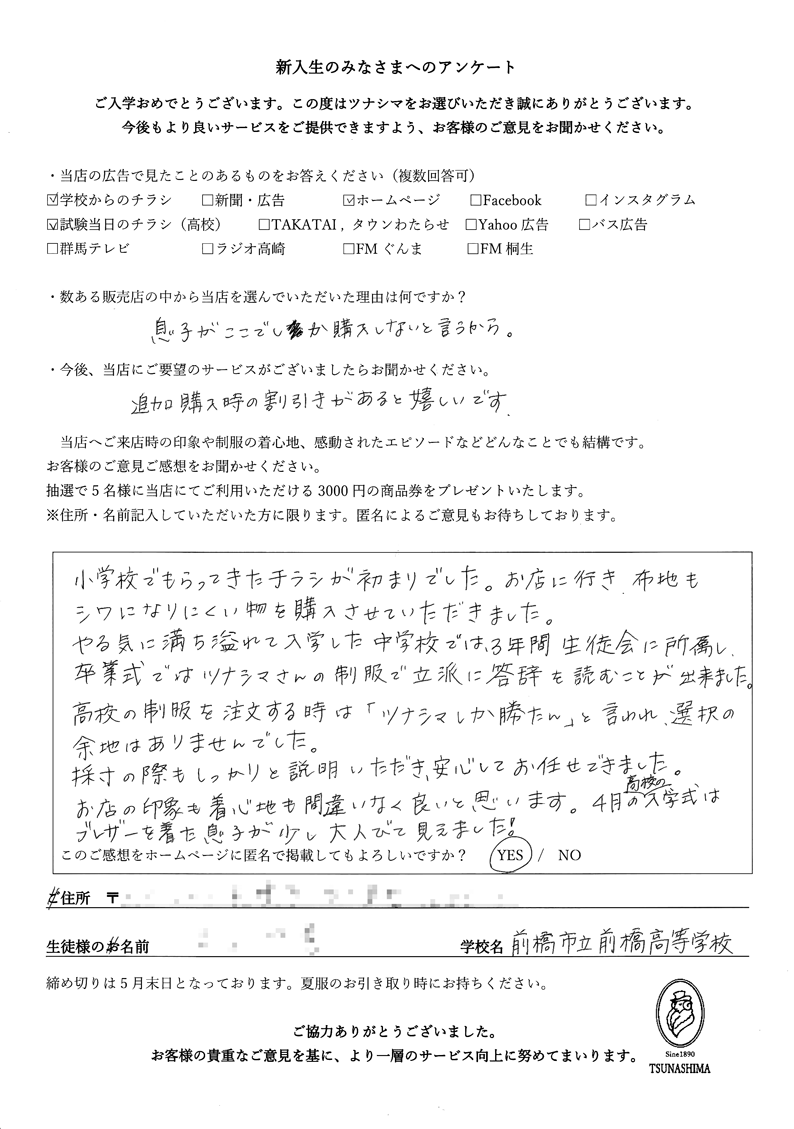 新入生のみなさまへのアンケート
ご入学おめでとうございます。この度はツナシマをお選びいただき誠にありがとうございます。
今後もより良いサービスをご提供できますよう、お客様のご意見をお聞かせください。
・当店の広告で見たことのあるものをお答えください（複数回答可）
☑学校からのチラシ　□新聞・広告　☑ホームページ　□Facebook　□インスタグラム
☑試験当日のチラシ（高校）　□TAKATAI , タウンわたらせ　□Yahoo 広告　□バス広告
□群馬テレビ　□ラジオ高崎　□FM ぐんま　□FM 桐生
・数ある販売店の中から当店を選んでいただいた理由は何ですか？
息子がここでしか購入しないと言うから。
・今後、当店にご要望のサービスがございましたらお聞かせください。
追加購入時の割引きがあると嬉しいです.
当店へご来店時の印象や制服の着心地、感動されたエピソードなどどんなことでも結構です。
お客様のご意見ご感想をお聞かせください。
抽選で 5 名様に当店にてご利用いただける 3000 円の商品券をプレゼントいたします。
※住所・名前記入していただいた方に限ります。匿名によるご意見もお待ちしております。
小学校でもらってきたチラシが初まりでした。お店に行き、布地も
シワになりにくい物を購入させていただきました。
やる気に満ち溢れて入学した中学校では、3年間 生徒会に所属し、
卒業式ではツナシマさんの制服で立派に答辞を読むことが出来ました。
高校の制服を注文する時は「ツナシマしか勝たん」と言われ、選択の
余地はありませんでした。
採寸の際もしっかりと説明いただき、安心してお任せできました。
お店の印象も着心地も間違いなく良いと思います。4月の高校の入学式は
ブレザーを着た息子が少し大人びて見えました!
このご感想をホームページに匿名で掲載してもよろしいですか？　YES / NO
住所　〒
生徒様のお名前　学校名 前橋市立前橋高等学校
締め切りは 5 月末日となっております。夏服のお引き取り時にお持ちください。
ご協力ありがとうございました。
お客様の貴重なご意見を基に、より一層のサービス向上に努めてまいります。
Sine1890
TSUNASHIMA